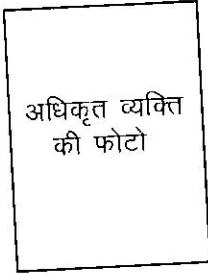 अधिकृत व्यक्ति
की फोटो